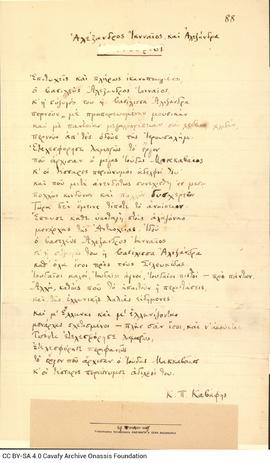 88
Αλέξανδρος Ιανναίος, και Αλεξάνδρα
Επιτυχείς και πλήρως ικανοποιημένοι,
ο βασιλεύς Αλέξανδρος Ιανναίος,
κ' η σύζυγός του η βασίλισσα Αλεξάνδρα
περνούν με προπορευομένην μουσικήν
και με παντοίαν μεγαλοπρέπειαν και χλιδήν,
περνούν απ' τες οδούς της Ιερουσαλήμ.
Ετελεσφόρησε λαμπρώς το έργον
που άρχισαν ο μέγας Ιούδας Μακκαβαίος
κ' οι τέσσαρες περιώνυμοι αδελφοί του
και που μετά ανενδότως συνεχίσθη εν μέσω
πολλών κινδύνων και πολλών δυσχερειών.
Τώρα δεν έμεινε τίποτε το ανοίκειον.
Έπαυσε κάθε υποταγή στους αλαζόνας
μονάρχας της Αντιοχείας. Ιδού
ο βασιλεύς Αλέξανδρος Ιανναίος
κ' η σύζυγός του η βασίλισσα Αλεξάνδρα
καθ' όλα ίσοι προς τους Σελευκίδας.
Ιουδαίοι καλοί, Ιουδαίοι αγνοί, Ιουδαίοι πιστοί — προ πάντων.
Αλλά, καθώς που το απαιτούν η περιστάσεις,
και της ελληνικής λαλιάς ειδήμονες
και μ' Έλληνας και μ' ελληνίζοντας
μονάρχας σχετισμένοι — πλην σαν ίσοι, και ν' ακούεται.
Τωόντι ετελεσφόρησε λαμπρώς,
ετελεσφόρησε περιφανώς
το έργον που άρχισαν ο μέγας Ιούδας Μακκαβαίος
κ' οι τέσσαρες περιώνυμοι αδελφοί του.
Κ. Π. Καβάφης
CC BY-SA 4.0 Cavafy Archive Onassis Foundation